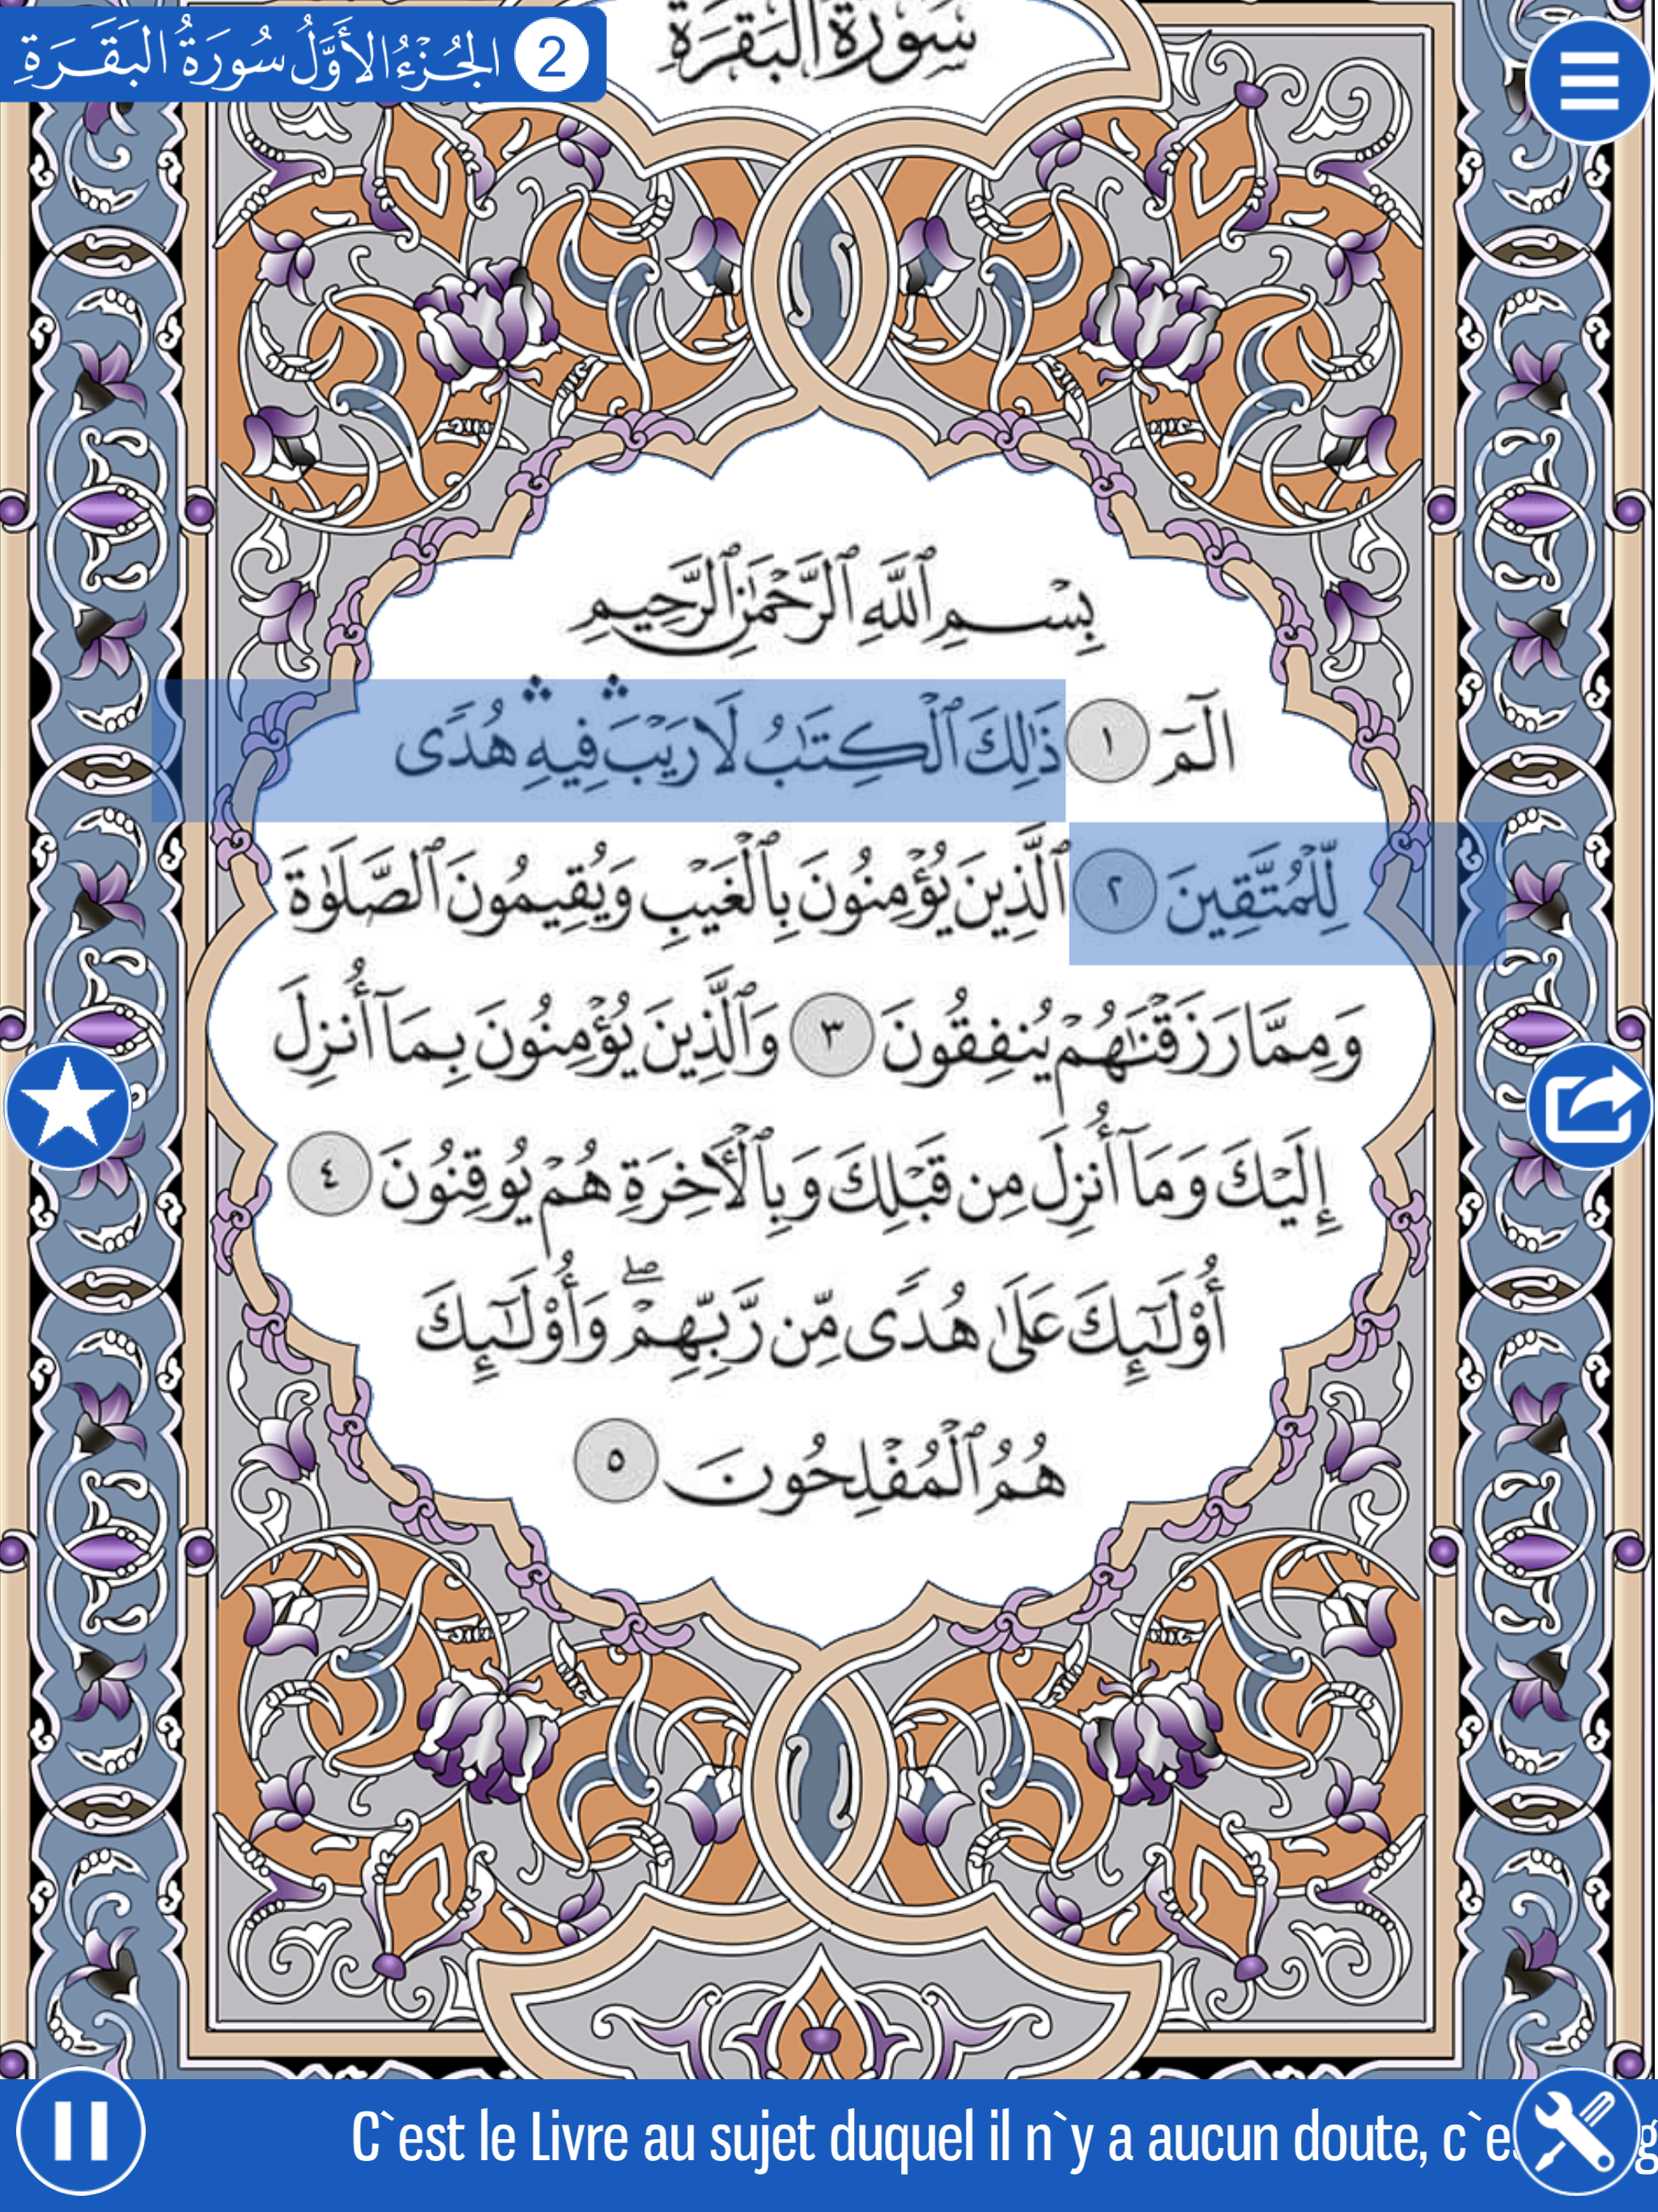 2 الجُزْءُ الأَوَّلُ سُورَةُ البَقَرَةِ
سورة البقرة
بِسْمِ ٱللَّهِ ٱلرَّحْمَٰنِ ٱلرَّحِيمِ
الٓمٓ ١ ذَٰلِكَ ٱلْكِتَٰبُ لَا رَيْبَ ۛ فِيهِ ۛ هُدًى
لِّلْمُتَّقِينَ ٢ ٱلَّذِينَ يُؤْمِنُونَ بِٱلْغَيْبِ وَيُقِيمُونَ ٱلصَّلَوٰةَ
وَمِمَّا رَزَقْنَٰهُمْ يُنفِقُونَ ٣ وَٱلَّذِينَ يُؤْمِنُونَ بِمَآ أُنزِلَ
إِلَيْكَ وَمَآ أُنزِلَ مِن قَبْلِكَ وَبِٱلْأٓخِرَةِ هُمْ يُوقِنُونَ ٤
أُو۟لَٰٓئِكَ عَلَىٰ هُدًى مِّن رَّبِّهِمْ ۖ وَأُو۟لَٰٓئِكَ
هُمُ ٱلْمُفْلِحُونَ ٥
C`est le Livre au sujet duquel il n`y a aucun doute,